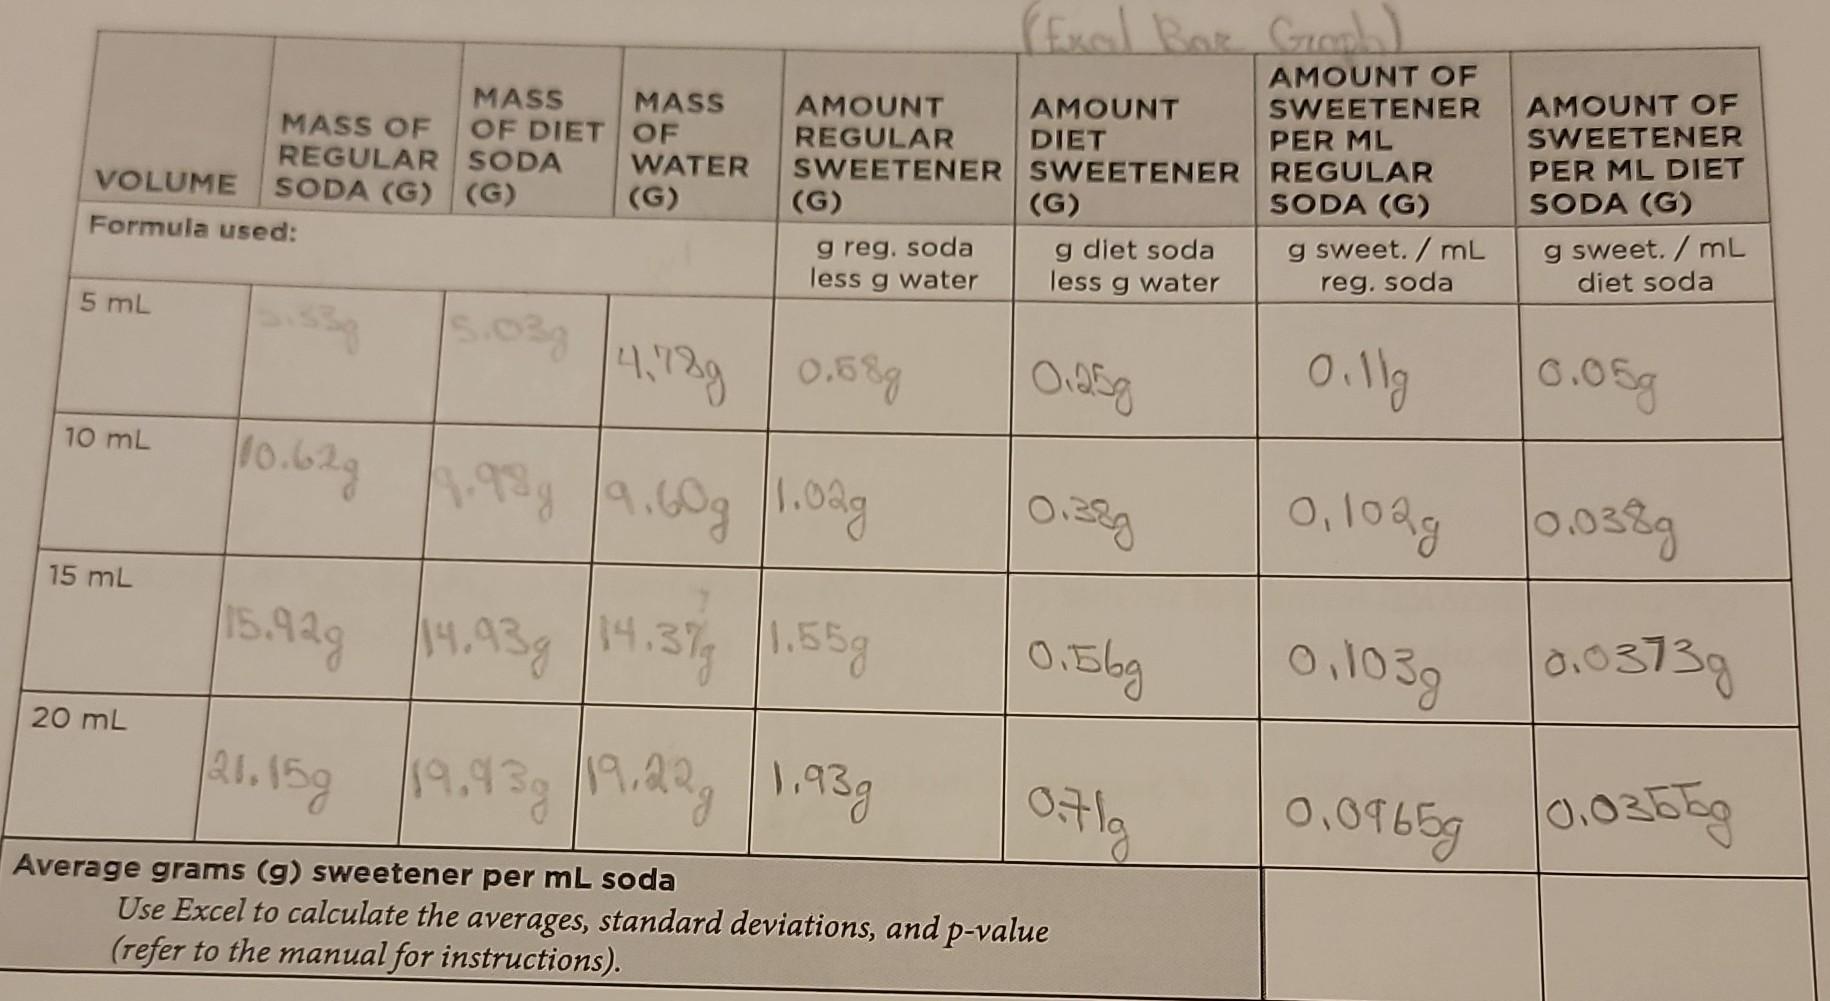 (Excel Bar Graph)
VOLUME
MASS OF
REGULAR
SODA (G)
MASS
OF DIET
SODA
(G)
MASS
OF
WATER
(G)
AMOUNT
REGULAR
SWEETENER
(G)
AMOUNT
DIET
SWEETENER
(G)
AMOUNT OF
SWEETENER
PER ML
REGULAR
SODA (G)
AMOUNT OF
SWEETENER
PER ML DIET
SODA (G)
Formula used:
g reg. soda
less g water
g diet soda
less g water
g sweet. / mL
reg. soda
g sweet. / mL
diet soda
5 mL
5.03g
4.78g
0.25g
0.11g
0.05g
10 mL
10.62g
9.98g
9.60g
1.02g
0.38g
0.102g
0.038g
15 mL
15.92g
14.93g
14.37g
1.55g
0.56g
0.103g
0.0373g
20 mL
21.15g
19.93g
19.22g
1.93g
0.71g
0.0965g
0.0355g
Average grams (g) sweetener per mL soda
Use Excel to calculate the averages, standard deviations, and p-value
(refer to the manual for instructions).